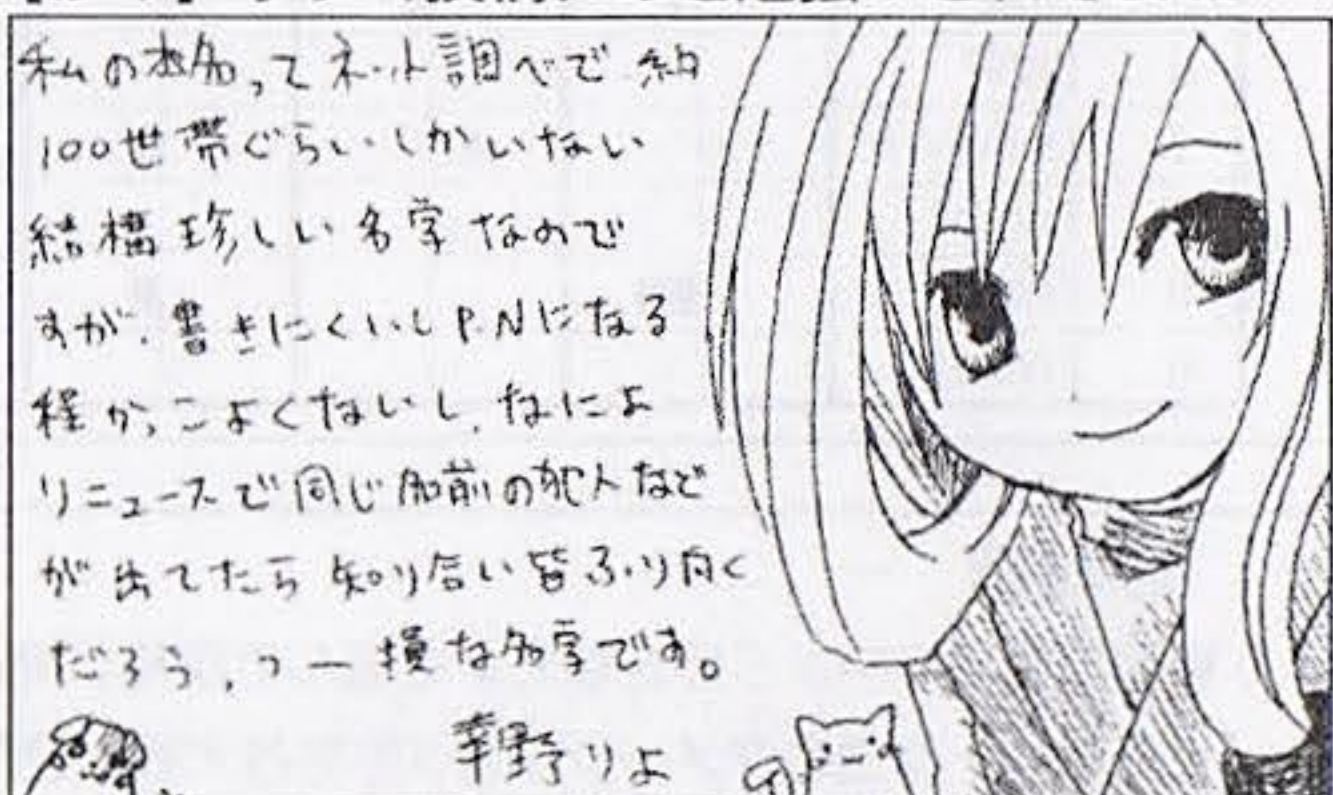 私の本名ってネット調べで約
100世帯ぐらいしかいない
結構珍しい名字なので
すが、書きにくいしP.Nになる
程かっこよくないし、なによ
りニュースで同じ名前の犯人など
が出てたら知り合い皆ふり向く
だろう、つー損な名字です。
華野りよ